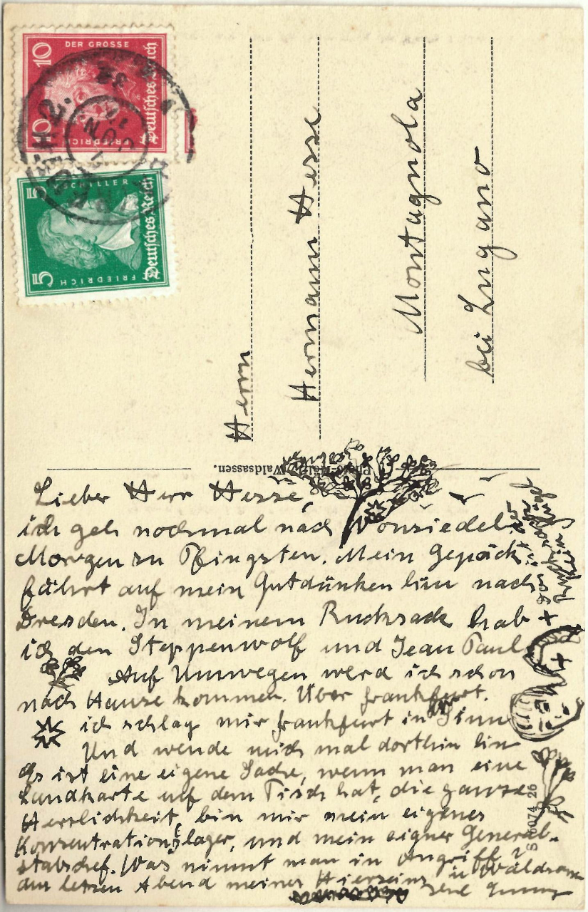 10
DER GROSSE
FRIEDRICH
Deutsches Reich
10
5
SCHILLER
FRIEDRICH
Deutsches Reich
5
Herrn
Hermann Hesse
Montagnola
bei Lugano
Waldsassen.
Lieber Herr Hesse,
ich geh nochmal nach Wonsiedel
Morgen zu Pfingsten. Mein Gepäck
fährt auf mein Gutdünken hin nach
Dresden. In meinem Rucksack hab
ich den Steppenwolf und Jean Paul
Auf Umwegen werd ich schon
nach Hause kommen. Über Frankfurt.
ich schlag mir Frankfurt in
Und wende mich mal dorthin hin
Es ist eine eigene Sache, wenn man eine
Landkarte auf dem Tisch hat, die ganze
Herrlichkeit, bin mir mein eigenes
Konzentrationslager, und mein eigner General-
stabschef. Was nimmt man in Angriff?
den letzten Abend meines Hierseins in Waldsassen
074 26